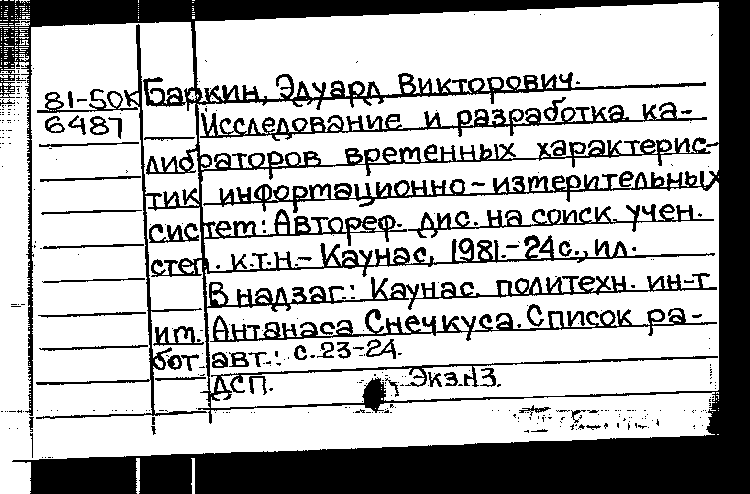 81-50К Баркин, Эдуард Викторович.
6487 Исследование и разработка ка-
либраторов временных характерис-
тик информационно-измерительных
систем: Автореф. дис. на соиск. учен.
степ. к.т.н.- Каунас, 1981.-24с., ил.
В надзаг.: Каунас. политехн. ин-т
им. Антанаса Снечкуса. Список ра-
бот авт.: с.23-24.
ДСП. Экз.№3.